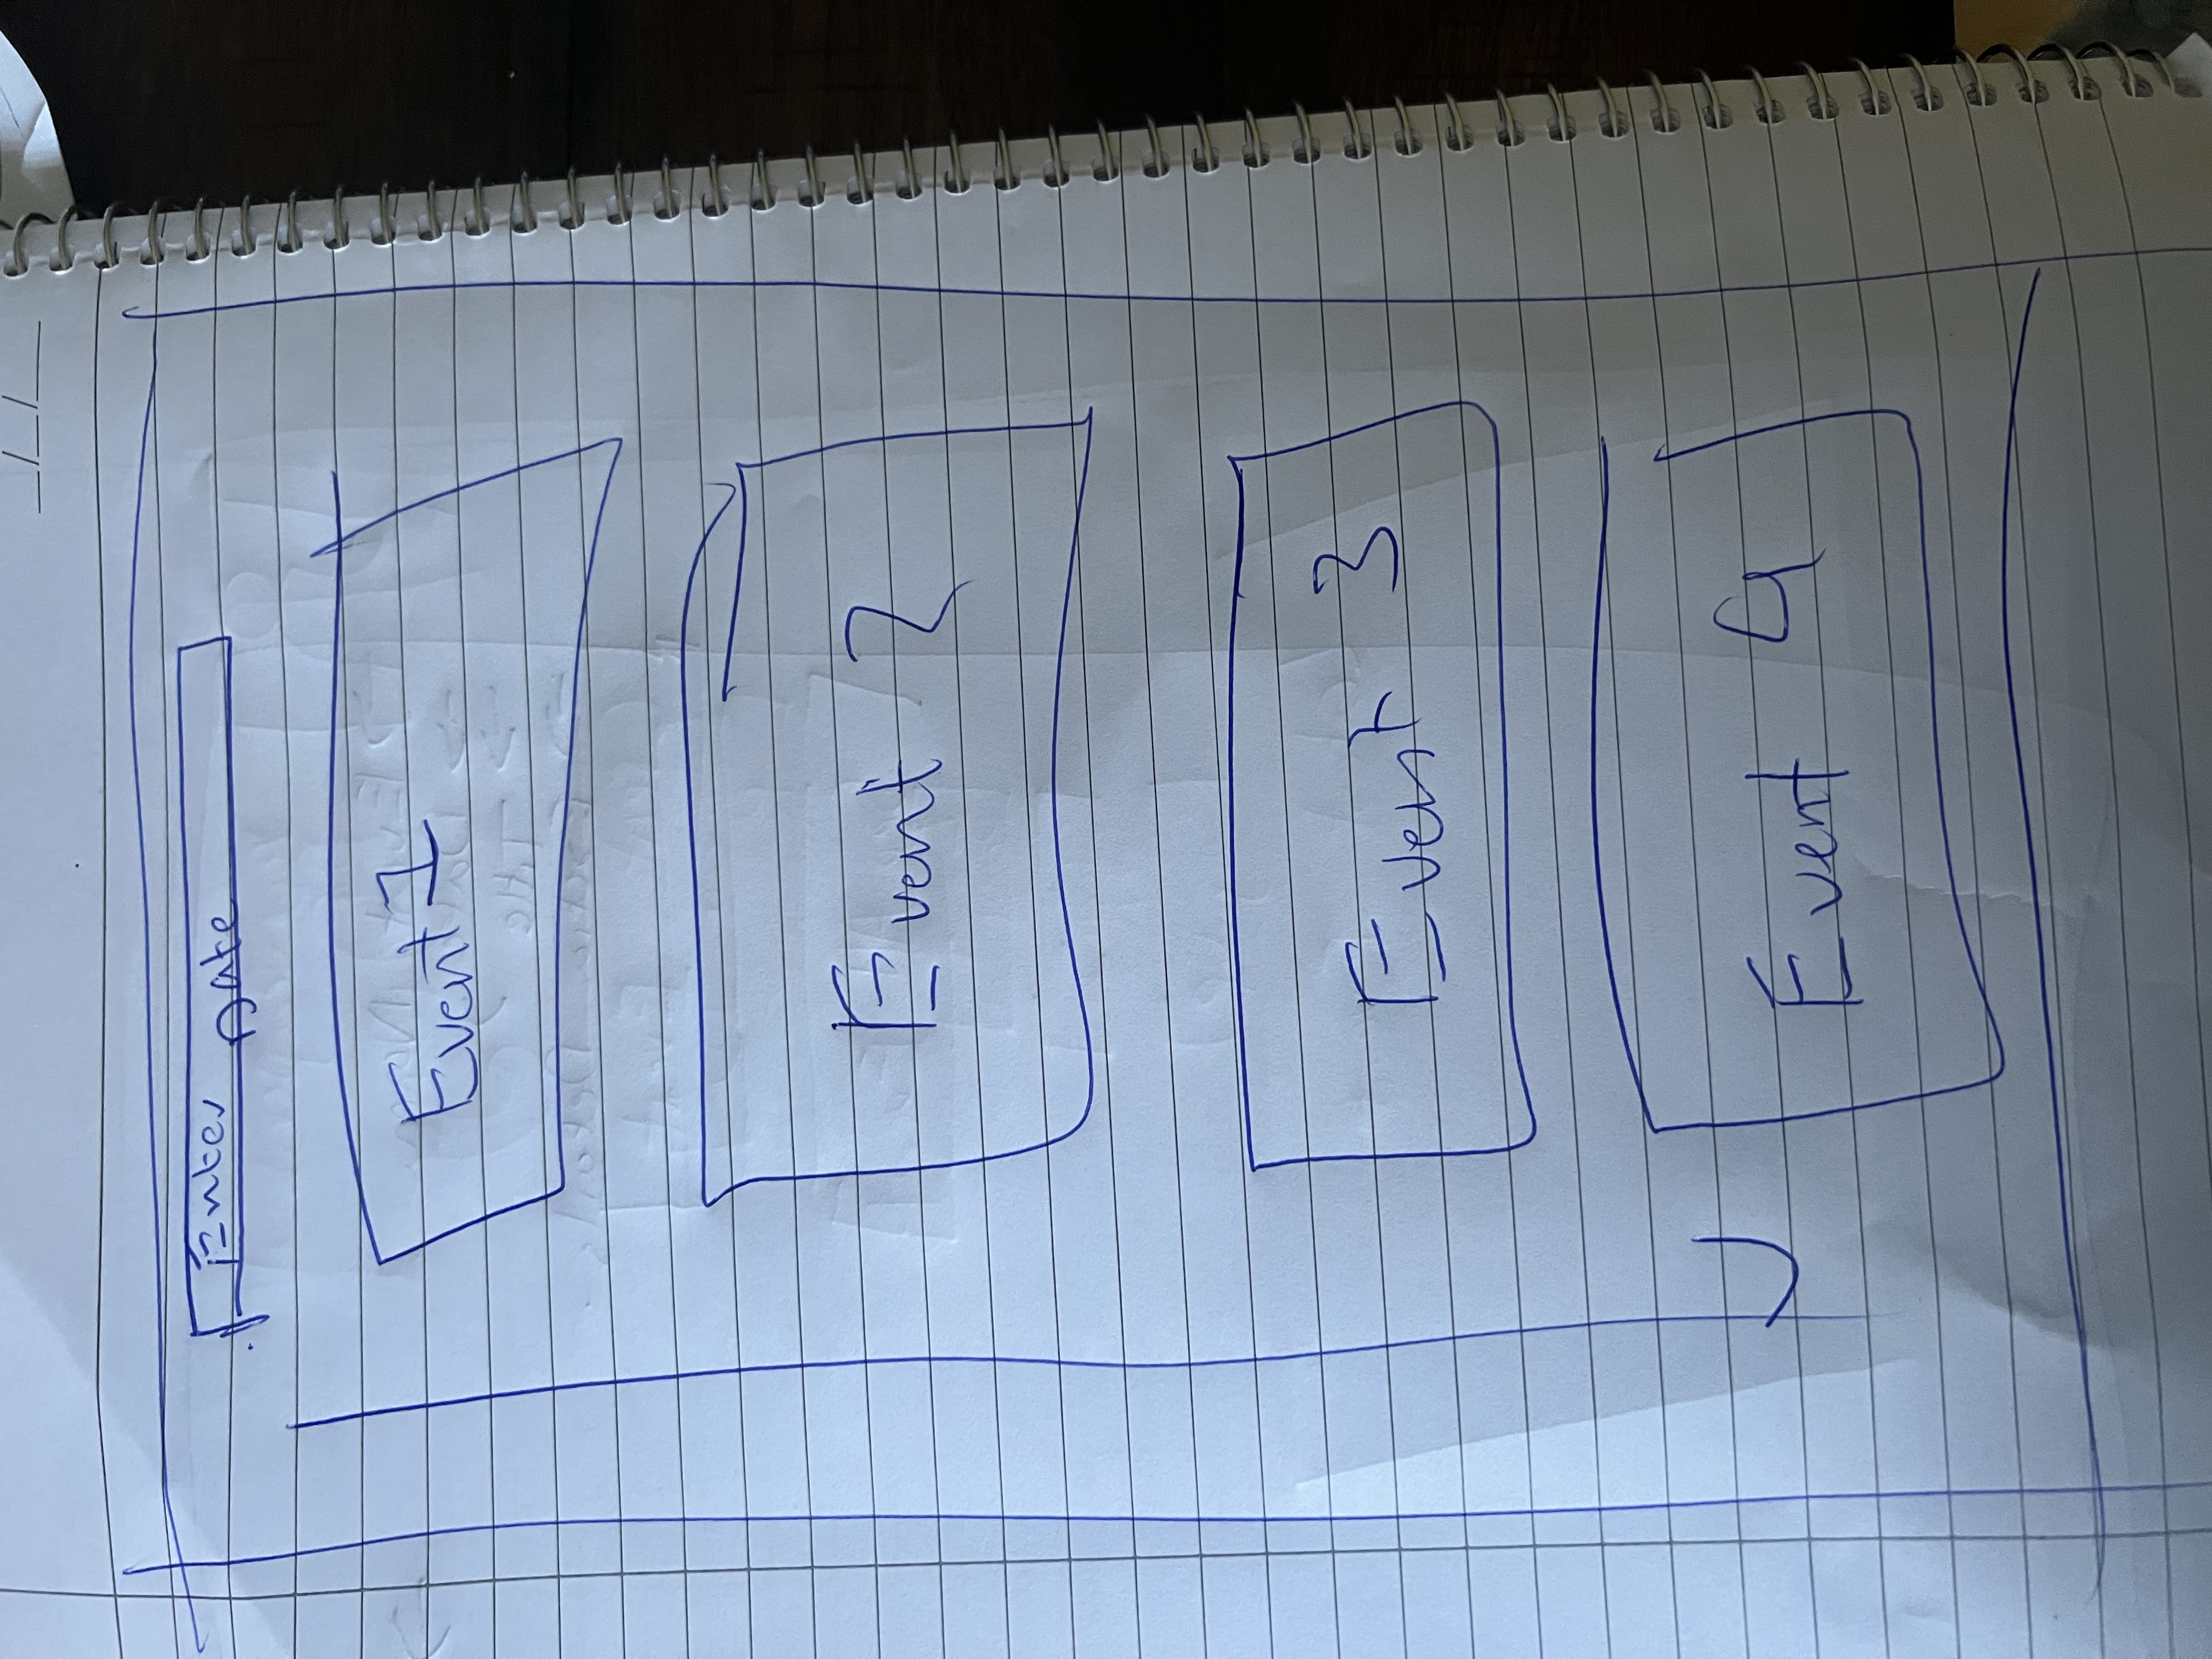 Enter Date
Event 1
Event 2
Event 3
Event 4